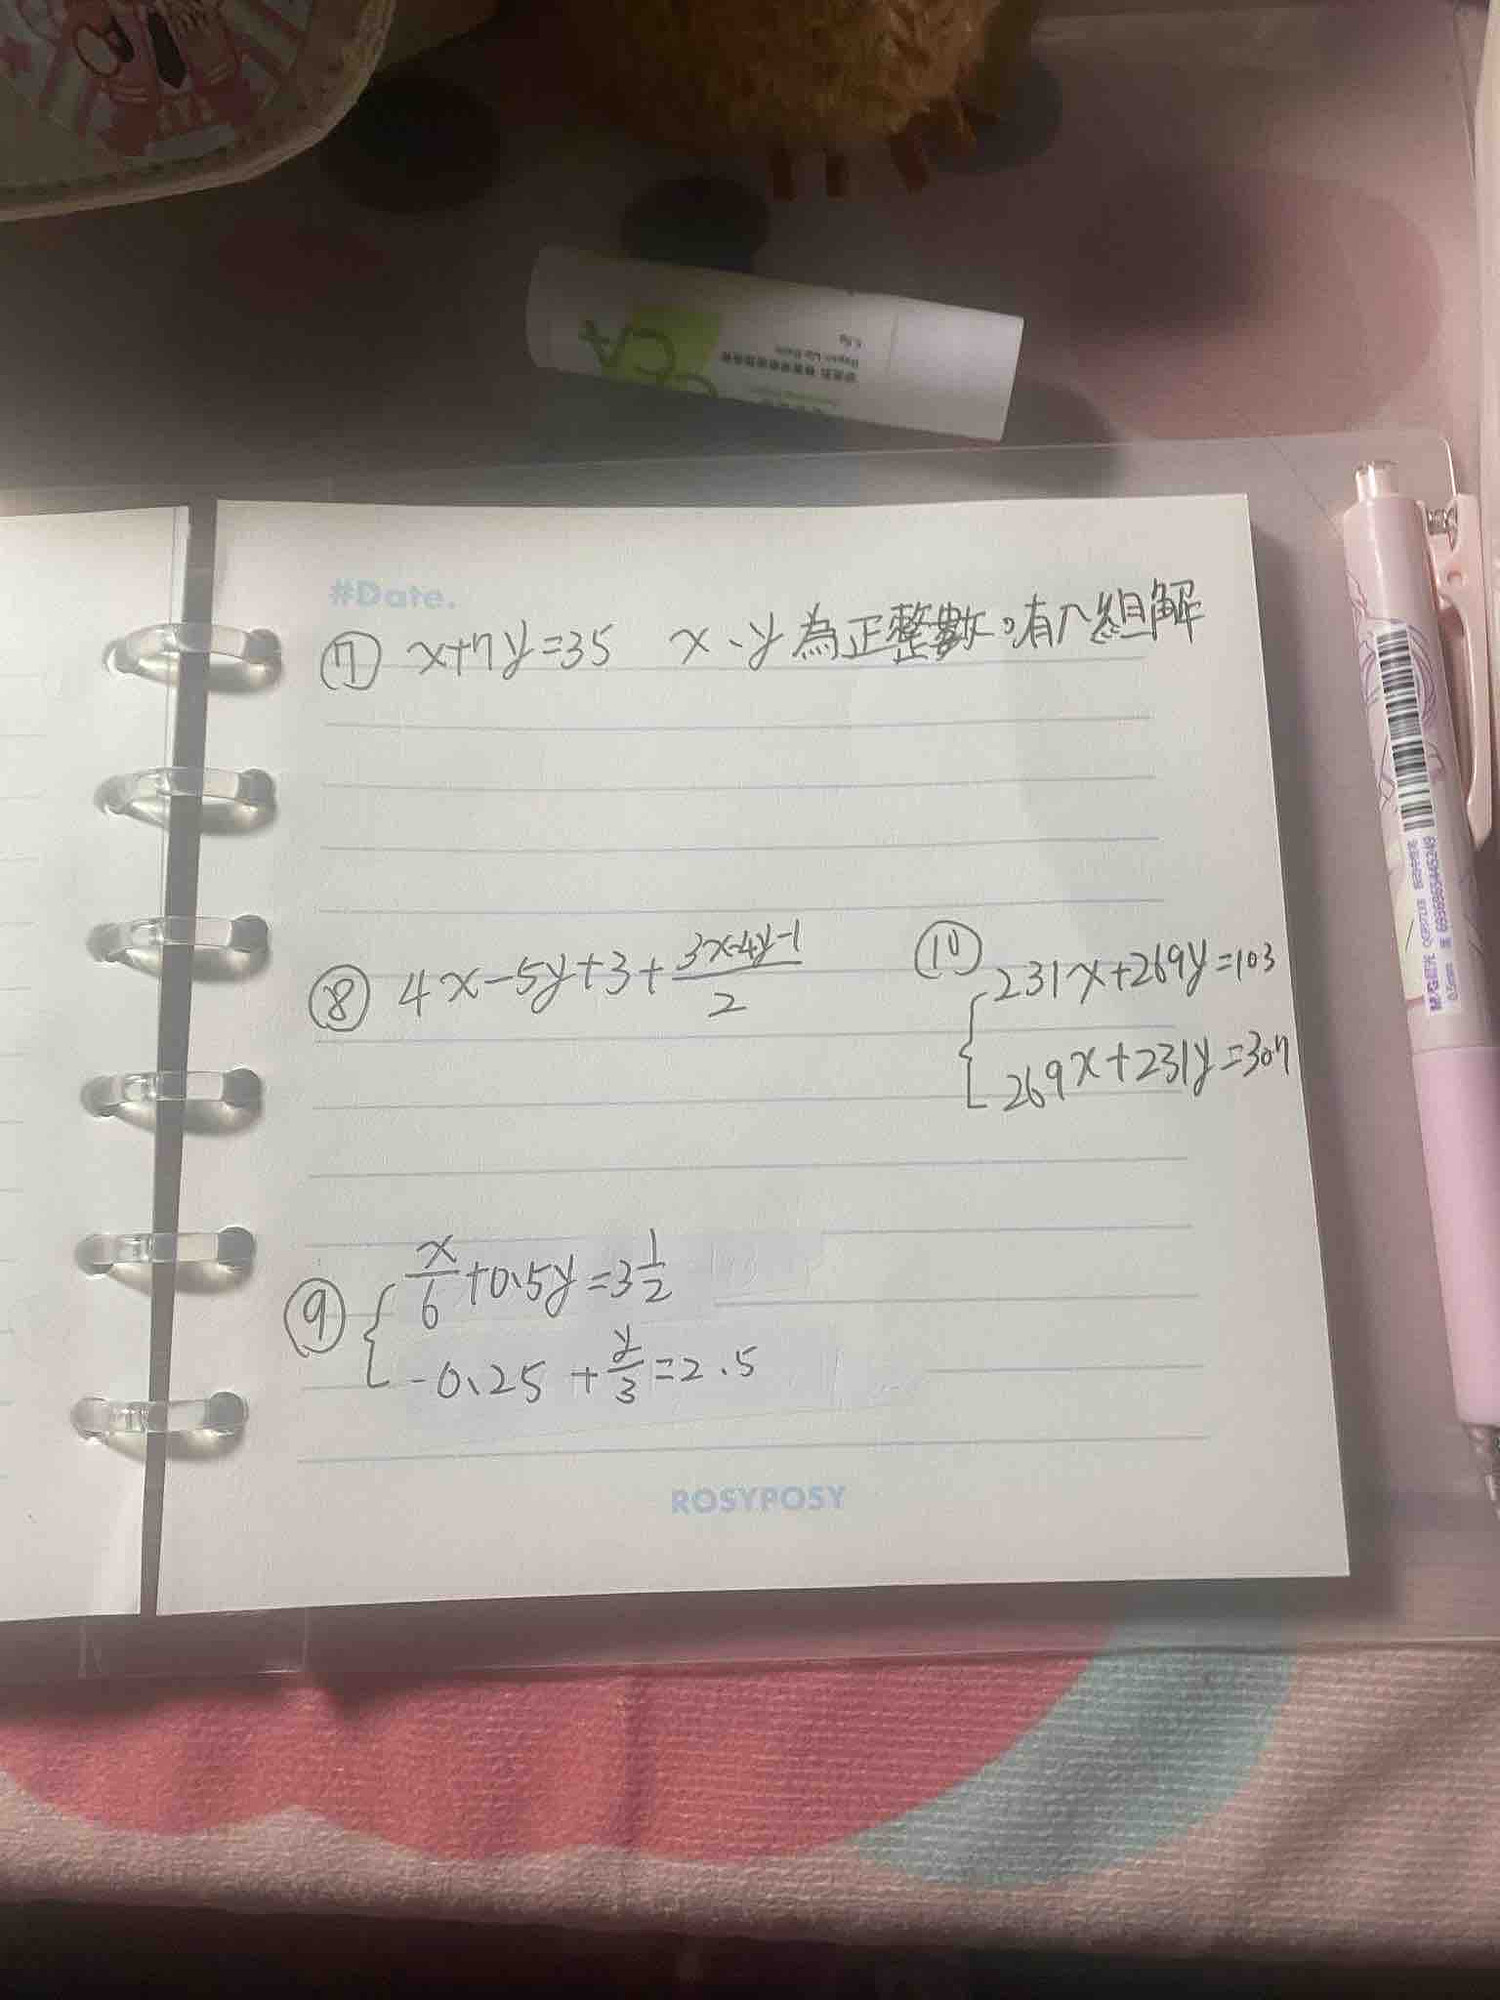 #Date.
⑦ x+7y=35 x、y為正整數。有八組解
⑧ 4x-5y+3+\frac{3x-4y-1}{2}
⑩ 231x+269y=103
269x+231y=307
⑨ \frac{x}{6}+0.5y=3\frac{1}{2}
-0.25+\frac{y}{3}=2.5
ROSYPOSY
M&G晨光 QGP7133
0.5mm
6936965445249